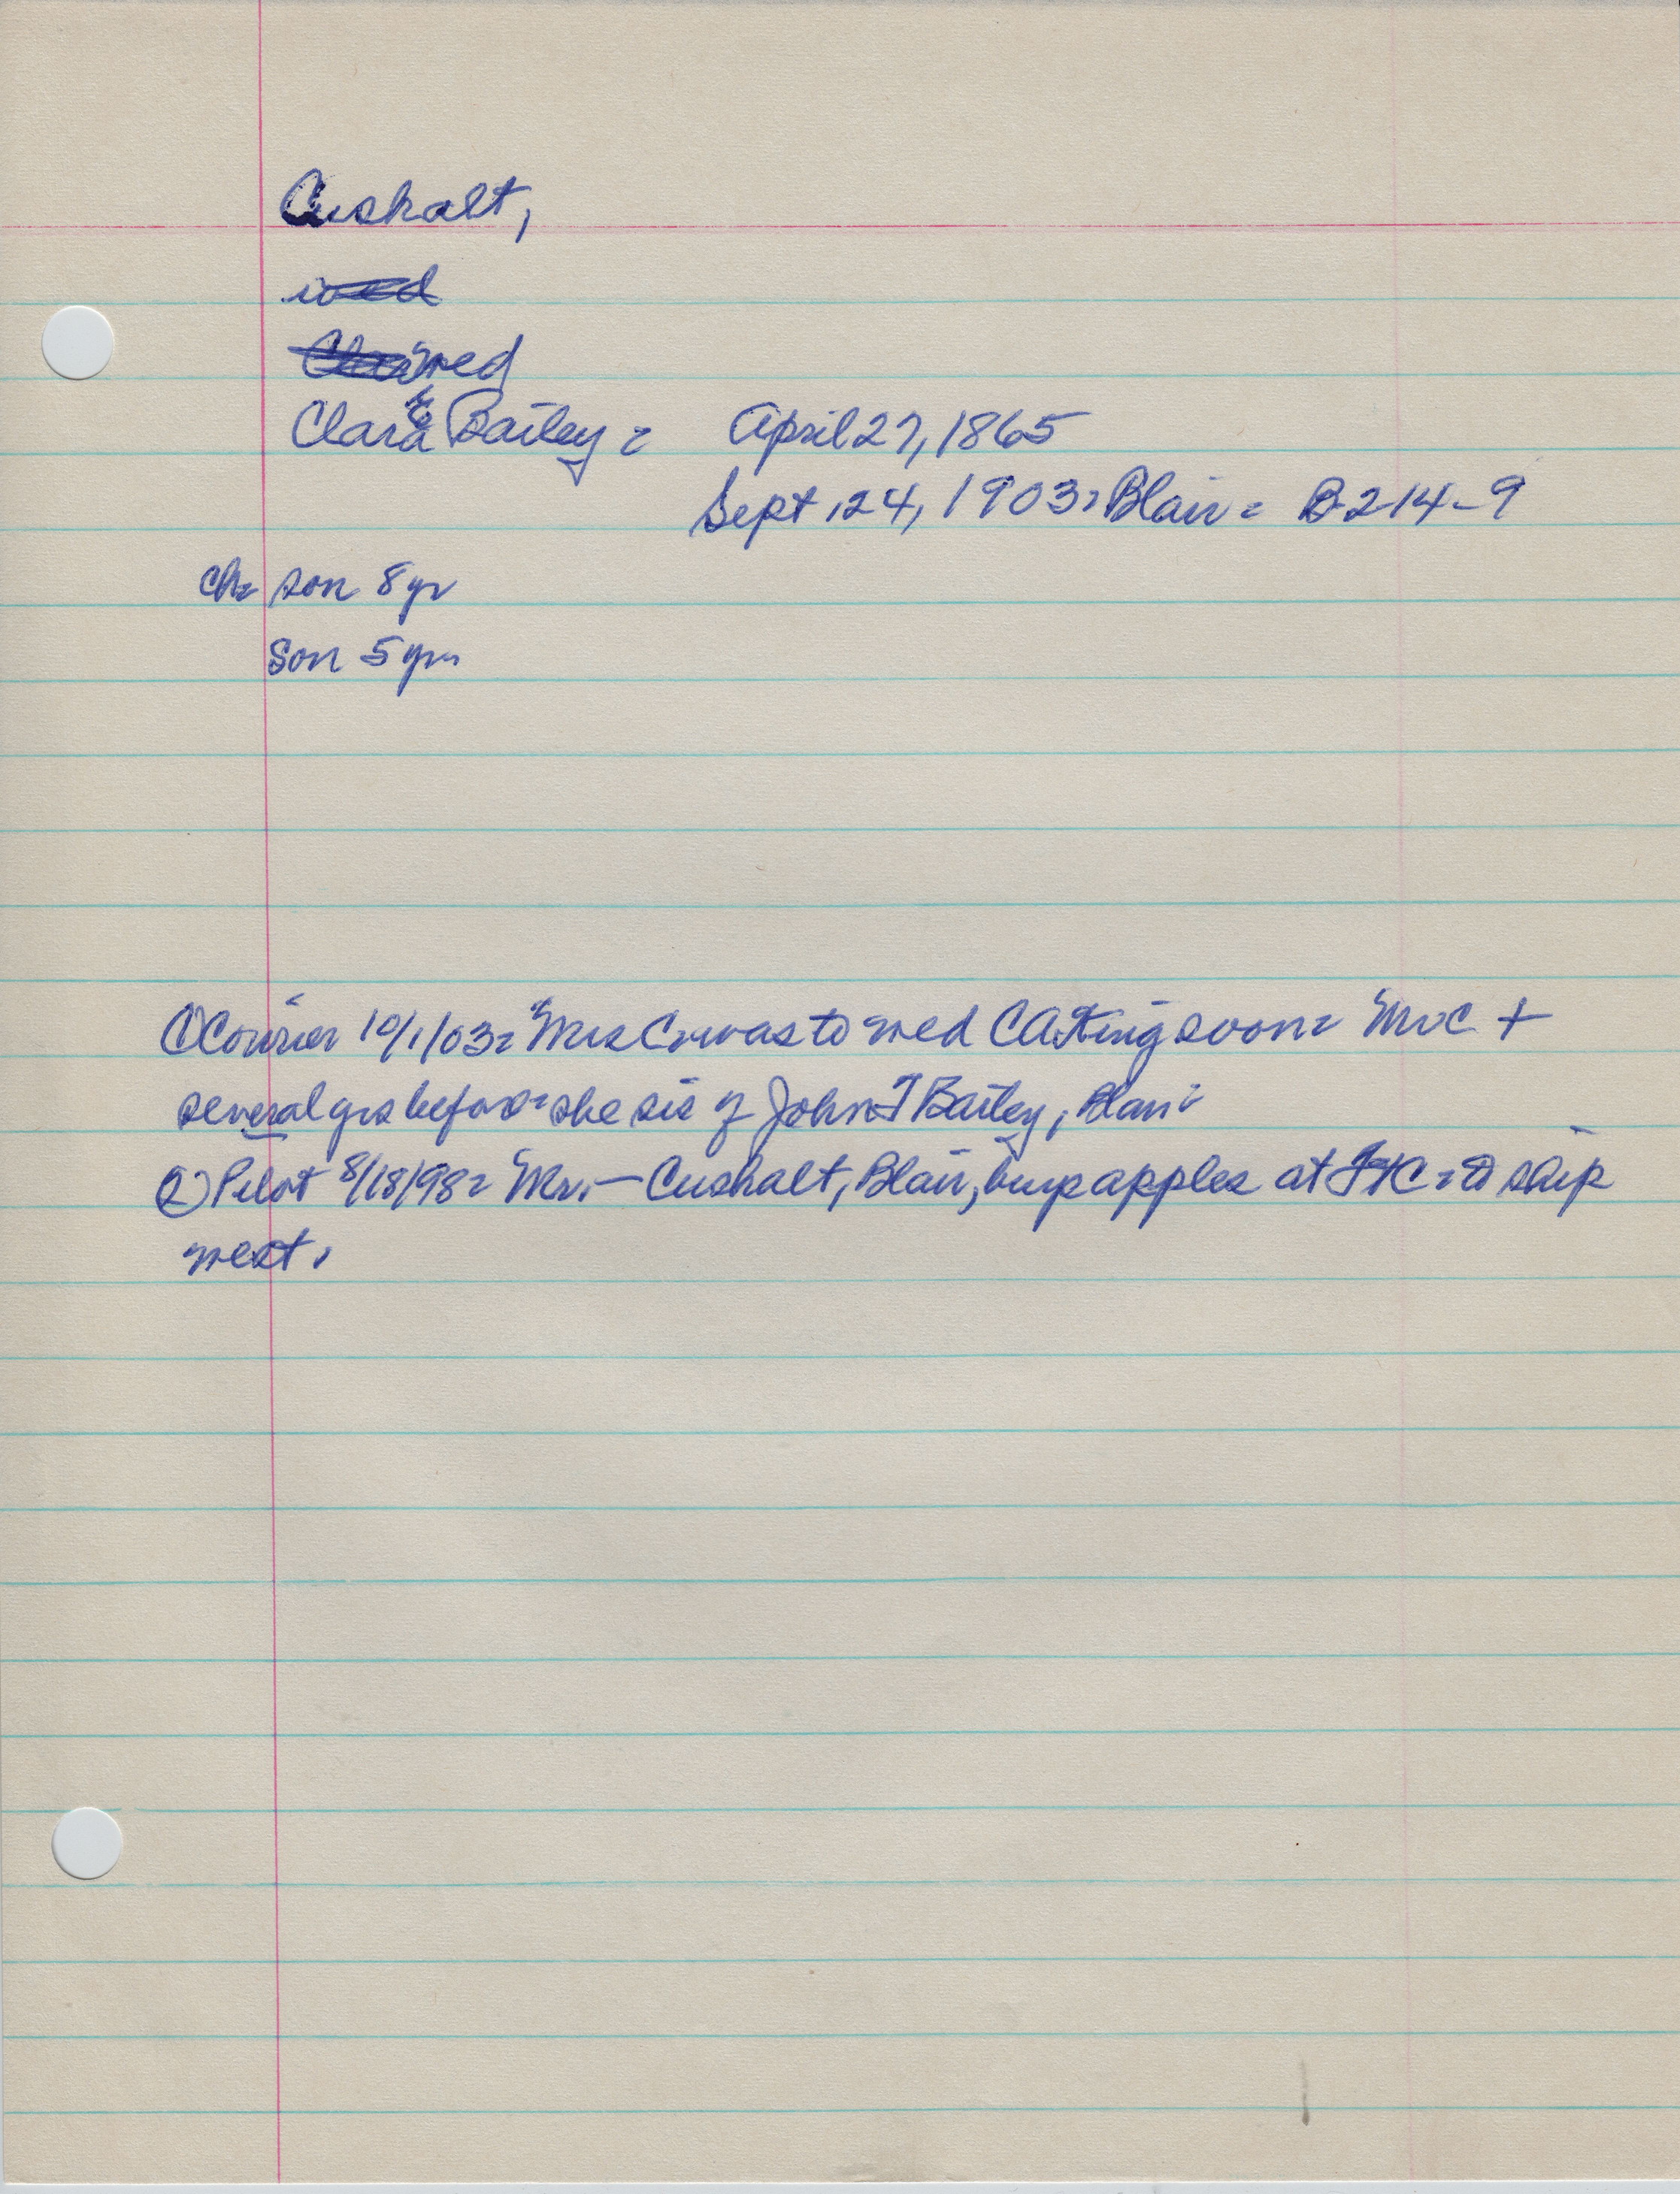 Cushalt,
med
Clara E Bailey = April 27, 1865
Sept 24, 1903 = Blair = B-214-9
ch= son 8 yr
son 5 yrs
① Courier 10/1/03 = Mrs C was to med C A King soon = Mr C +
several yrs before = she sis of John T Bailey, Blair
② Pilot 8/18/98 = Mr. — Cushalt, Blair, buys apples at = to ship
west.